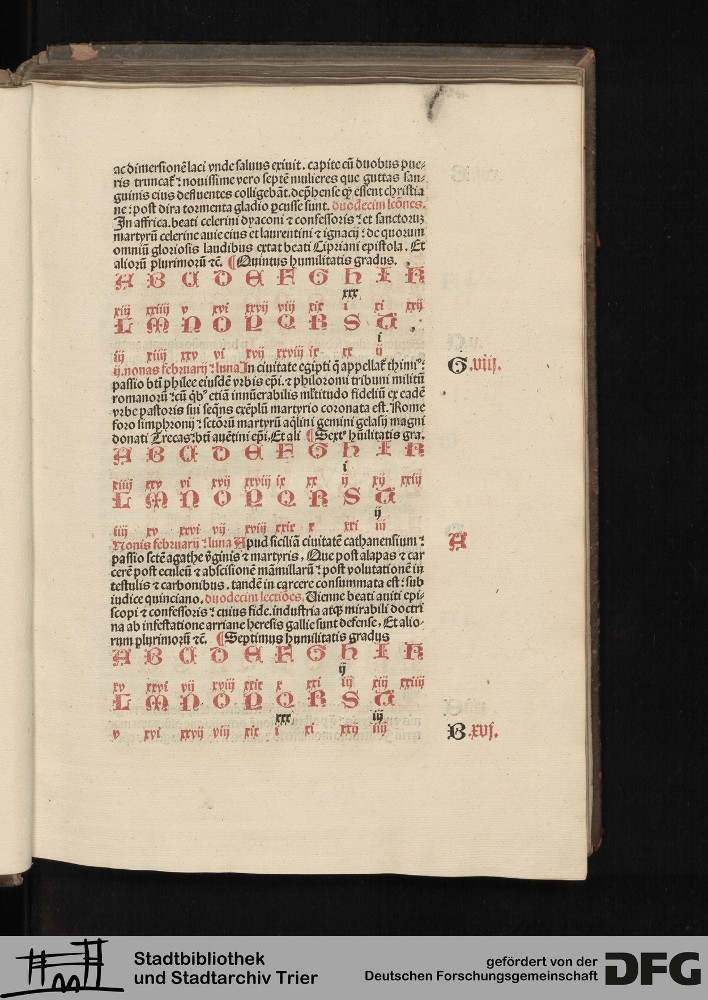 ac dimersionē laci vnde saluus exiuit. capite cū duobus pue-
ris truncatꝰ: nouissime vero septē mulieres que guttas san-
guinis eius defluentes colligebāt. dep̄hense qꝫ essent christia
ne: post dira tormenta gladio ꝑcusse sunt. duodecim lcōnes.
In affrica. beati celerini dyaconi ⁊ confessoris: et sanctoruꝫ
martyrū celerine auie eius et laurentini ⁊ ignacij: de quorum
omniū gloriosis laudibus extat beati Cipriani epistola. Et
aliorū plurimorū ⁊c. ¶Quintus humilitatis gradus.
A B C D E F G H I K
xxx
xiij xxiiij v xvi xxvij viij xix i xi xxij
L M N O P Q R S T
i
iij xiiij xxv vi xvij xxviij ix xx ij
ij. nonas februarij: luna In ciuitate egipti q̄ appellat thimꝰ:
G .viij.
passio bt̄i philee eiusdē vrbis ep̄i. ⁊ philoromi tribuni militū
romanorū: cū qͥbꝰ etiā innūerabilis ml̄titudo fideliū ex eadē
vrbe pastoris sui seq̄ns exēplū martyrio coronata est. Rome
foro simphronij: sctōrū martyrū aq̄lini gemini gelasij magni
donati Trecas: bt̄i auētini ep̄i. Et ali ¶Sextꝰ hūilitatis gra.
A B C D E F G H I K
i
xiiij xxv vi xvij xxviij ix xx ij xij xxiij
L M N O P Q R S T
ij
iiij xv xxvi vij xviij xxix x xxi iij
Nonis februarij: luna Apud siciliā ciuitatē cathanensium:
A
passio sctē agathe v̄ginis ⁊ martyris. Que post alapas ⁊ car
cerē post eculeū ⁊ abscisionē māmillarū: post volutationē in
testulis ⁊ carbonibus. tandē in carcere consummata est: sub
iudice quinciano. duodecim lectiōes. Vienne beati auiti epi-
scopi ⁊ confessoris: cuius fide. industria atqꝫ mirabili doctri
na ab infestatione arriane heresis gallie sunt defense. Et alio-
rum plurimorū ⁊c. ¶Septimus humilitatis gradus
A B C D E F G H I K
ij
xv xxvi vij xviij xxix x xxi iij xiij xxiiij
L M N O P Q R S T
xxx iij
v xvi xxvij viij xix i xi xxij iiij
B .xvj.
Stadtbibliothek
und Stadtarchiv Trier
gefördert von der
Deutschen Forschungsgemeinschaft
DFG